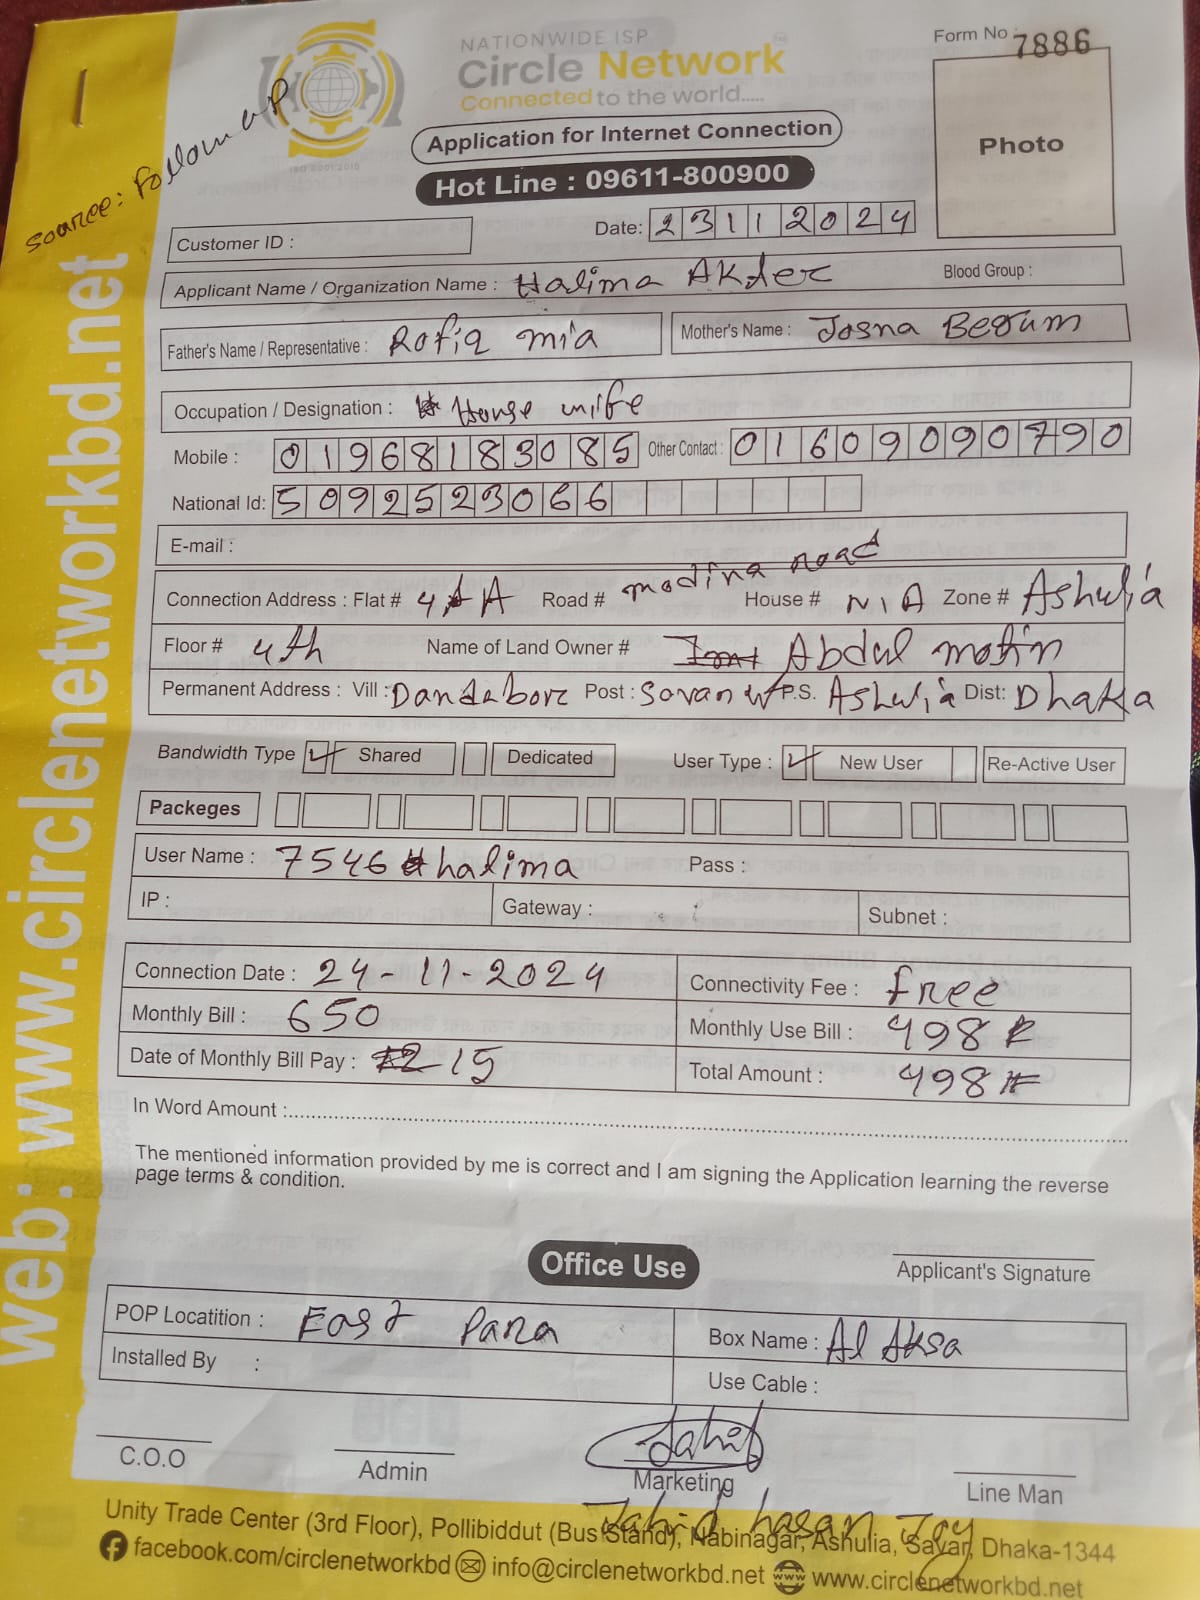 NATIONWIDE ISP
Circle Network
Connected to the world.....
Form No 7886
Source: Follow UP
ISO 9001:2015
Application for Internet Connection
Hot Line : 09611-800900
Photo
Customer ID :
Date: 23112024
Applicant Name / Organization Name : Halima AKter Blood Group :
Father's Name / Representative : Rofiq mia Mother's Name : Josna Begum
Occupation / Designation : House wife
Mobile : 01968183085 Other Contact : 01609090790
National Id: 5092523066
E-mail :
Connection Address : Flat # 4 A Road # madina road House # N/A Zone # Ashulia
Floor # 4th Name of Land Owner # Abdul motin
Permanent Address : Vill : Dandabore Post : Savar P.S. Ashulia Dist: Dhaka
Bandwidth Type ✓ Shared Dedicated User Type : ✓ New User Re-Active User
Packeges
User Name : 7546 halima Pass :
IP : Gateway : Subnet :
Connection Date : 24-11-2024 Connectivity Fee : free
Monthly Bill : 650 Monthly Use Bill : 498
Date of Monthly Bill Pay : 15 Total Amount : 498
In Word Amount :
The mentioned information provided by me is correct and I am signing the Application learning the reverse
page terms & condition.
Office Use
Applicant's Signature
POP Locatition : East Para Box Name : Al Aksa
Installed By : Use Cable :
Jahid
C.O.O Admin Marketing Line Man
Jahid hasan Joy
Unity Trade Center (3rd Floor), Pollibiddut (Bus Stand), Nabinagar, Ashulia, Savar, Dhaka-1344
facebook.com/circlenetworkbd info@circlenetworkbd.net www.circlenetworkbd.net
web: www.circlenetworkbd.net